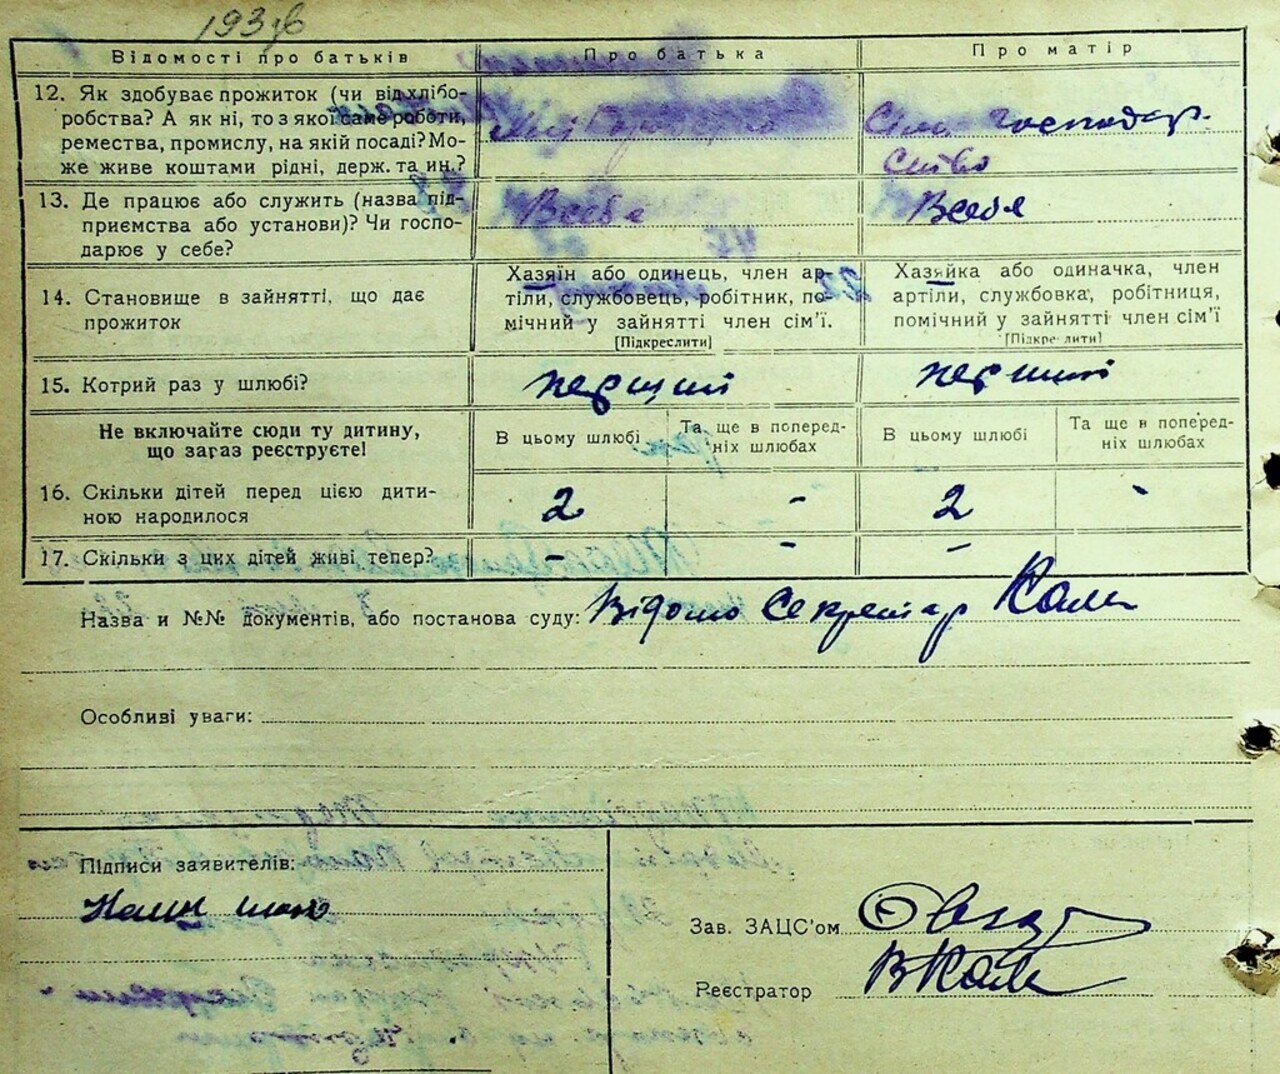 Відомості про батьків
Про батька
Про матір
12. Як здобуває прожиток (чи від хлібо-
робства? А як ні, то з якої саме роботи,
ремества, промислу, на якій посаді? Мо-
же живе коштами рідні, держ. та ин.?
Сіль господар-
ство
13. Де працює або служить (назва під-
приємства або установи)? Чи госпо-
дарює у себе?
Всебе
Всебе
14. Становище в зайнятті, що дає
прожиток
Хазяїн або одинець, член ар-
тіли, службовець, робітник, по-
мічний у зайнятті член сім'ї.
[Підкреслити]
Хазяйка або одиначка, член
артіли, службовка, робітниця,
помічний у зайнятті член сім'ї
[Підкреслити]
15. Котрий раз у шлюбі?
перший
перший
Не включайте сюди ту дитину,
що зараз реєструєте!
В цьому шлюбі
Та ще в поперед-
ніх шлюбах
В цьому шлюбі
Та ще в поперед-
ніх шлюбах
16. Скільки дітей перед цією дити-
ною народилося
2
-
2
-
17. Скільки з цих дітей живі тепер?
-
-
-
Назва и №№ документів, або постанова суду: Відомо Секретар
Особливі уваги:
Підписи заявителів:
Зав. ЗАЦС'ом
Реєстратор